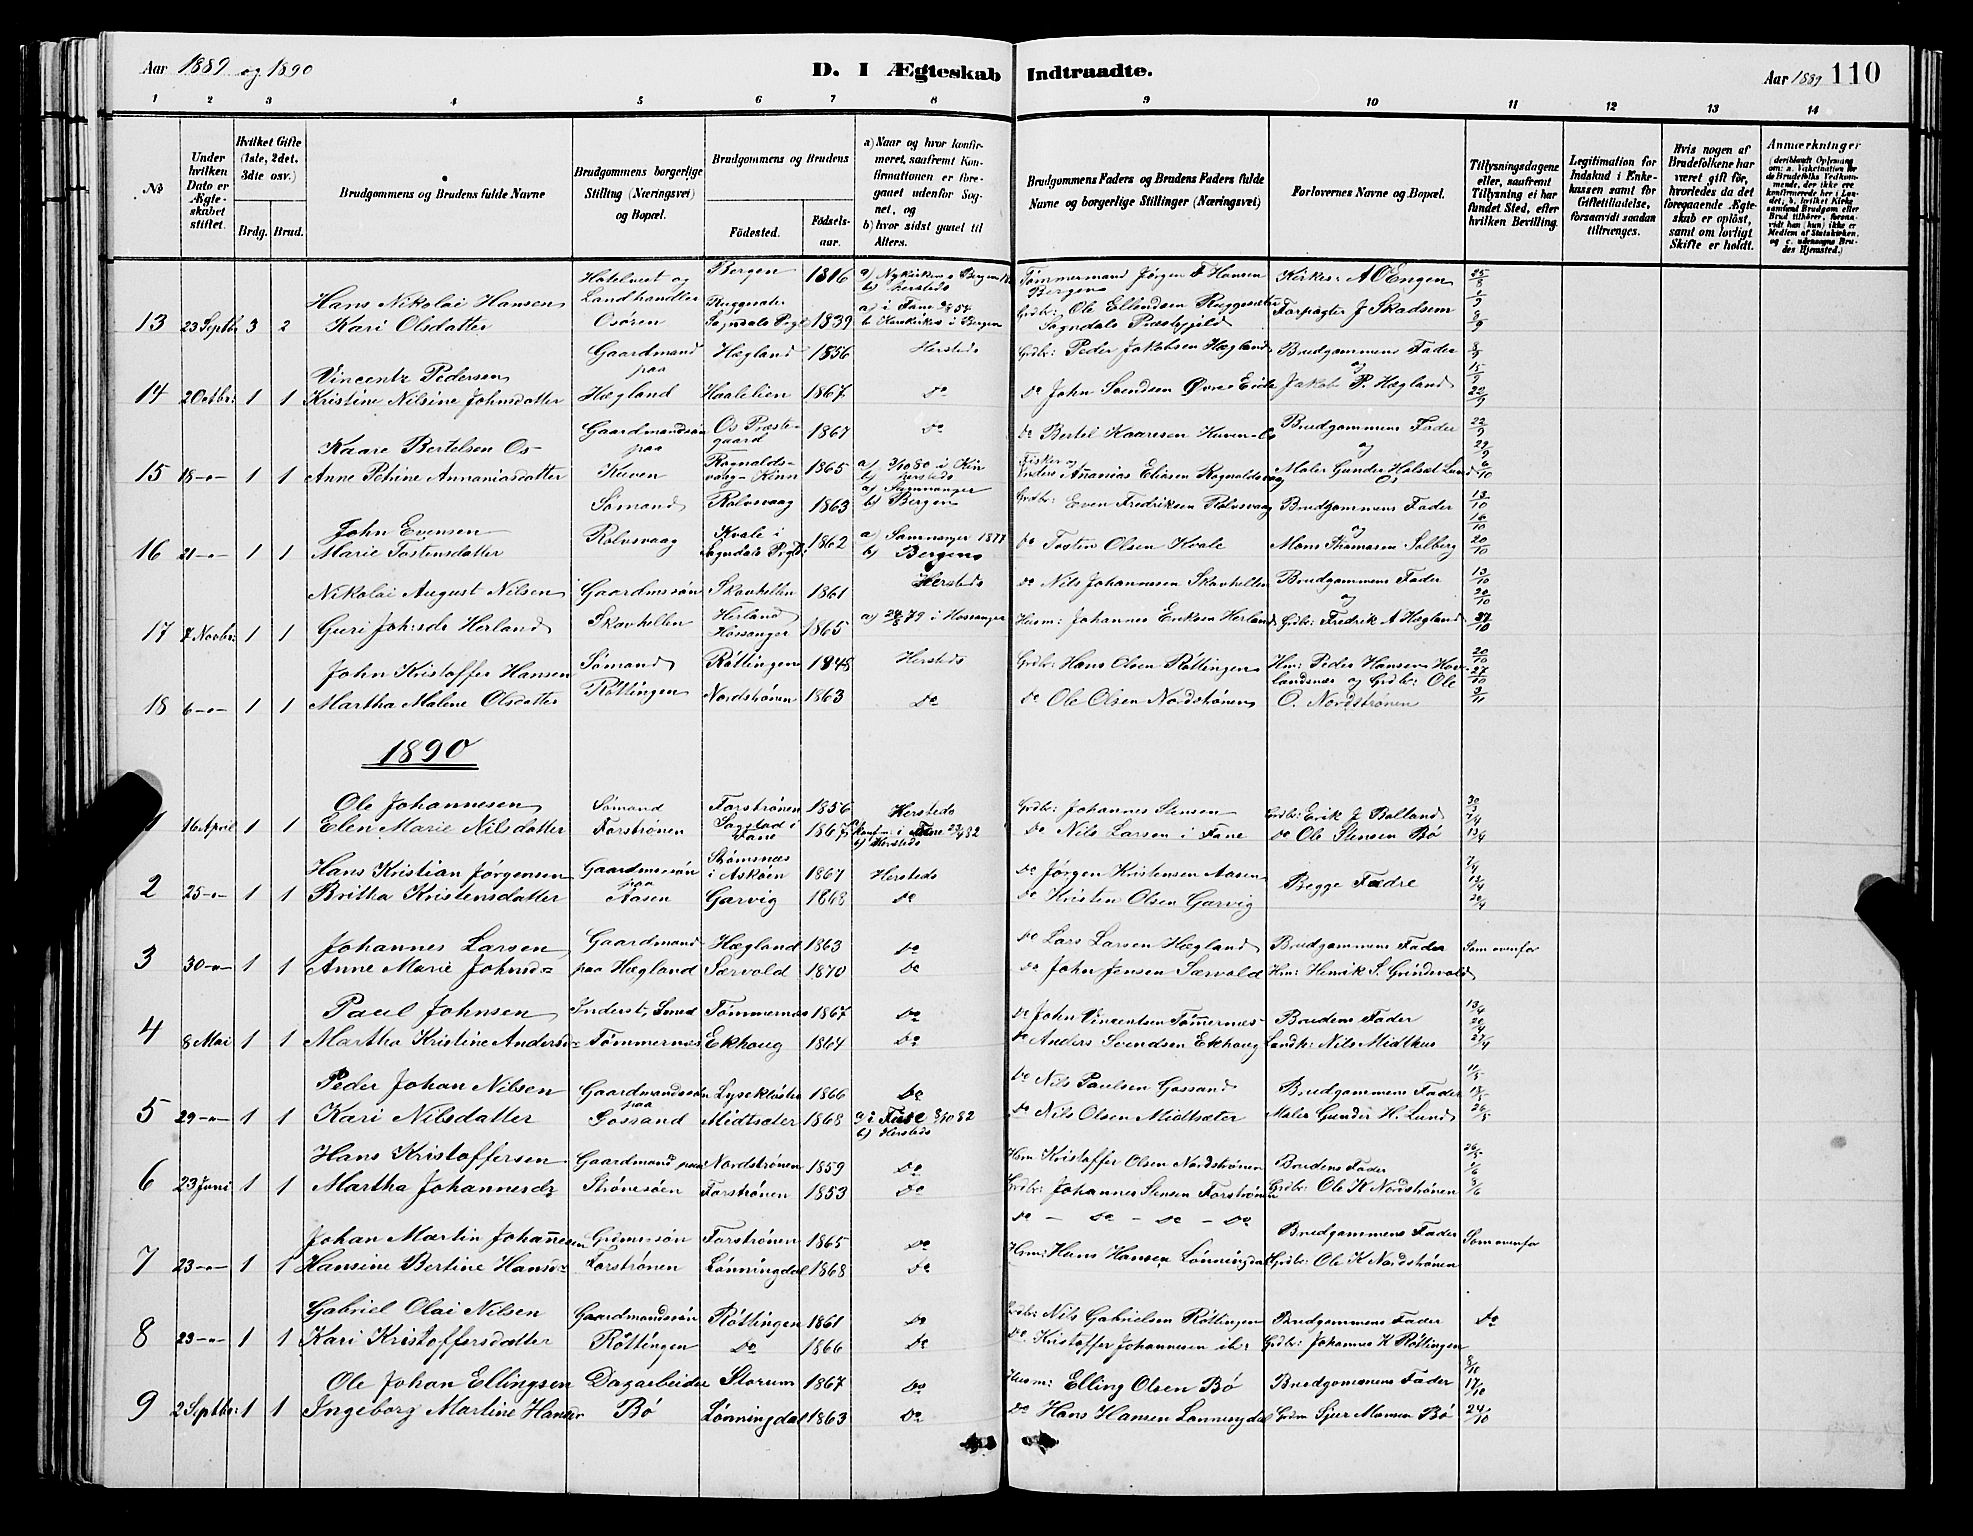 Aar 1889 og 1890
D. I Ægteskab Indtraadte.
Aar 1889 110
1 2 3 4 5 6 7 8 9 10 11 12 13 14
No
Under hvilken Dato er Ægteskabet stiftet.
Hvilket Gifte (1ste, 2det, 3die osv.)
Brdg. Brud.
Brudgommens og Brudens fulde Navne
Brudgommens borgerlige Stilling (Næringsvei) og Bopæl.
Brudgommens og Brudens
Fødested. Fødselsaar.
a) Naar og hvor konfirmeret, saafremt Konfirmationen er foregaaet udenfor Sognet, og b) hvor sidst gaaet til Alters.
Brudgommens Faders og Brudens Faders fulde Navne og borgerlige Stillinger (Næringsvei)
Forlovernes Navne og Bopæl.
Tillysningsdagene eller, saafremt Tillysning ei har fundet Sted, efter hvilken Bevilling.
Legitimation for Indskud i Enkekassen samt for Giftetilladelse, forsaavidt saadan tiltrænges.
Hvis nogen af Brudefolkene har været gift før, hvorledes da det foregaaende Ægteskab er opløst, samt om lovligt Skifte er holdt.
Anmærkninger
Hotelvert og Bergen 1816 a) Nykirken i Bergen b) Hersteds Tømmermand Jørgen F Hansen Bergen Kirkes: A O Engen
13 23 Septbr 3 2 Hans Nikolai Hansen Kari Olsdatter Landhandler Osøren Sogndals Pgld 1839 Grdbr: Ole Ellendsen Sogndals Præstegjeld Forpagter J Skadsem 8/9
Gaardmand paa Hægland 1856 Hersteds Grdbr: Peder Jakobsen Hægland Brudgommens Fader og 8/9 15/9
14 2 Octbr: 1 1 Vincentz Pedersen Kristine Nilsine Johnsdatter Hægland Haalelien 1867 Do Do John Svendsen Øvre Eide Jakob P. Hægland 22/9
Gaardmandssøn paa Os Præstegaard 1867 Do Do Bertel Kaaresen Brudgommens Fader og 22/9 29/9
15 18 -"- 1 1 Kaare Bertelsen Os Anne Petrine Annaniasdatter Rognaldsvaag Kinn 1865 a) 3/10 80 i Kin b) Hersteds Fisker og Ananias Eliasen Rognaldsvaag Maler Gunder Halvst Lund Os 6/10
Sømand Rolvsvaag 1863 a) Samnanger b) Bergen Grdbr: Even Fredriksen Rolvsvaag Brudgommens Fader og 13/10
16 21 -"- 1 1 John Evensen Marie Tostensdatter Rolvsvaag Kvale i Sogndals Pgld: 1862 a) Samnanger 1877 b) Bergen Do Tosten Olsen Kvale Mons Thomasen Solberg 20/10
Nikolai August Nilsen Gaardmssøn Skavhellen 1861 Hersteds Do Nils Johannesen Skavhellen Brudgommens Fader og 13/10 20/10
17 7 Novbr: 1 1 Guri Johsdr Herland Skavhellen Herland Hosanger 1865 i Hosanger Husm: Johannes Eriksen Herland Grdbr: Fredrik A Hægland 27/10
John Kristoffer Hansen Sømand Røttingen 1848 Hersteds Grdbr: Hans Olsen Røttingen Hm: Peder Hansen Hovlandsnæs og Grdbr: Ole 20/10 27/10
18 6 -"- 1 1 Martha Malene Olsdatter Røttingen Nordstrønen 1863 Do Do Ole Olsen Nordstrønen O. Nordstrønen 3/11
1890
Ole Johannesen Sømand Forstrønen 1856 Hersteds Grdbr: Johannes Stensen Grdbr: Erik J Bolland 30/3
1 16 April 1 1 Elen Marie Nilsdatter Forstrønen Sagstad i Fane Konf: i Fane b) Hersteds Do Nils Larsen i Fane Do Ole Stensen Bø 13/4
Hans Kristian Jørgensen Gaardmssøn paa Strømsnæs i Askøen 1867 Hersteds Do Jørgen Kristensen Aasen 7/4 13/4
2 25 -"- 1 1 Britha Kristensdatter Aasen Garvig 1868 Do Do Kristen Olsen Garvig Begge Fædre 20/4
Johannes Larsen Gaardmand Hægland 1863 Do Do Lars Larsen Hægland Brudgommens Fader Som ovenfor
3 30 -"- 1 1 Anne Marie Johnsd= paa Hægland Særvold 1870 Do Do John Jensen Særvold Hm: Henrik S. Grindevold
Paul Johnsen Inderst, Smed Tømmernes 1867 Do Do John Vincentsen Tømernes Brudens Fader 13/4 20/4
4 8 Mai 1 1 Martha Kristine Andersd= Tømmernes Ekhoug 1864 Do Do Anders Svendsen Ekhoug Landh: Nils Midthus 27/4
Peder Johan Nilsen Gaardmandssøn paa Lyseklostr 1866 Do Do Nils Paulsen Gossand Brudgommens Fader 11/5 18/5
5 29 -"- 1 1 Kari Nilsdatter Gossand Midtsæter 1868 a) i Fuse 8/10 82 b) Hersteds Do Nils Olsen Midtsæter Maler Gunder H. Lund 26/5
Hans Kristoffersen Gaardmand paa Nordstrønen 1859 Do Hsm Kristoffer Olsen Nordstrønen Brudens Fader 26/5 1/6
6 23 Juni 1 1 Martha Johannesd Strønesøen Forstrønen 1853 Do Grdbr: Johannes Stensen Forstrønen Grdbr: Ole K Nordstrønen 8/6
Johan Martin Johannesen Grdmssøn Forstrønen 1865 Do Do - Do - Do - Do Brudgommens Fader Som ovenfor
7 23 -"- 1 1 Hansine Bertine Hansd= Forstrønen Lønningdal 1868 Do Hsm: Hans Hansen Lønningdal Grdbr: Ole K Nordstrønen
Gabriel Olai Nilsen Gaardmandssøn Røttingen 1861 Do Grdbr: Nils Gabrielsen Røttingen Brudgommens Fader Do
8 23 -"- 1 1 Kari Kristoffersdatter Røttingen Do 1866 Do Do. Kristoffer Johannesen ib: Grdbr: Johannes K Røttingen
Ole Johan Ellingsen Dagarbeider Storum 1867 Do Husm: Elling Olsen Bø Brudgommens Fader 8/10 17/10
9 2 Septbr: 1 1 Ingeborg Martine Hansdr Bø Lønningdal 1863 Do Do Hans Hansen Lønningdal Grdm Sjur Monsen Bø 24/10